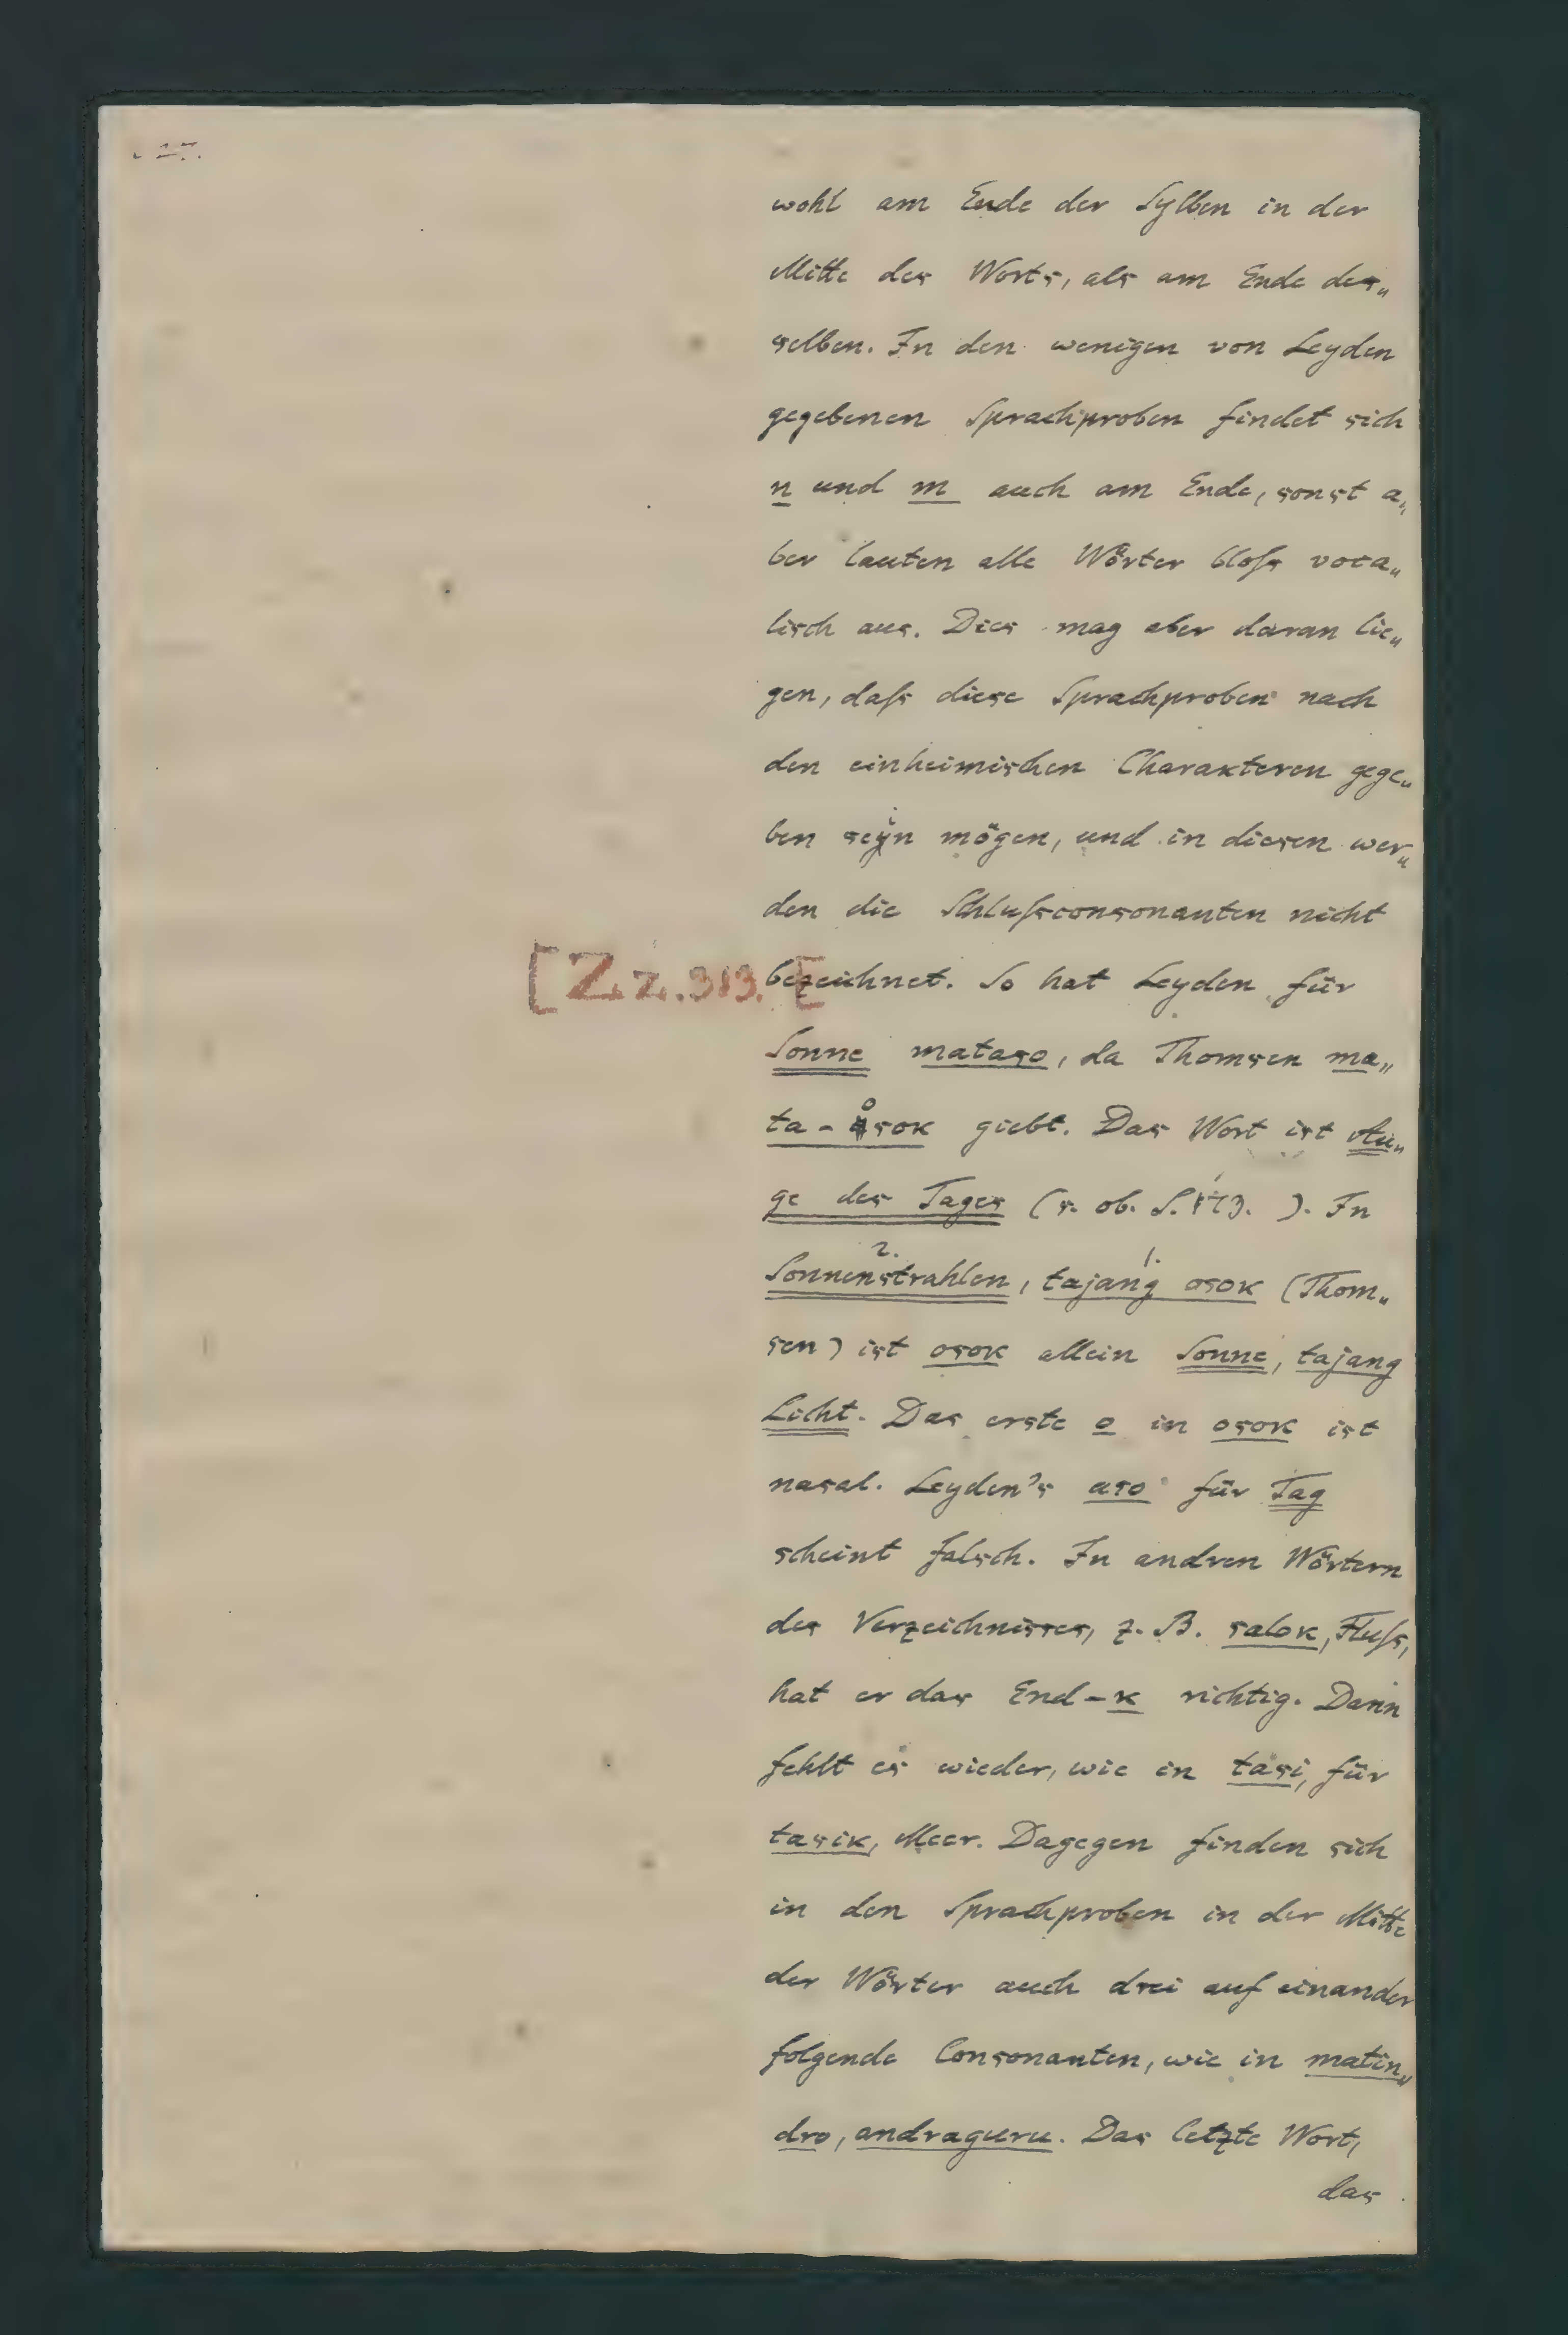 wohl am Ende der Sylben in der
Mitte des Worts, als am Ende des„
selben. In den wenigen von Leyden
gegebenen Sprachproben findet sich
n und m auch am Ende, sonst a„
ber lauten alle Wörter bloſs voca„
lisch aus. Dies mag aber daran lie„
gen, daſs diese Sprachproben nach
den einheimischen Charakteren gege„
ben seÿn mögen, und in diesen wer„
den die Schluſsconsonanten nicht
[Zz.313. [ bezeichnet. So hat Leyden für
Sonne mataso, da Thomsen ma„
ta-osok giebt. Das Wort ist Au„
ge des Tages (s. ob. S. 173. ). In
2. 1.
Sonnenstrahlen, tajang osok (Thom„
sen) ist osok allein Sonne, tajang
Licht. Das erste o in osok ist
nasal. Leyden's aso für Tag
scheint falsch. In andren Wörtern
des Verzeichnisses, z. B. salok, Fluſs,
hat er das End-k richtig. Dann
fehlt es wieder, wie in tasi, für
tasik, Meer. Dagegen finden sich
in den Sprachproben in der Mitte
der Wörter auch drei auf einander
folgende Consonanten, wie in matin„
dro, andraguru. Das letzte Wort,
das